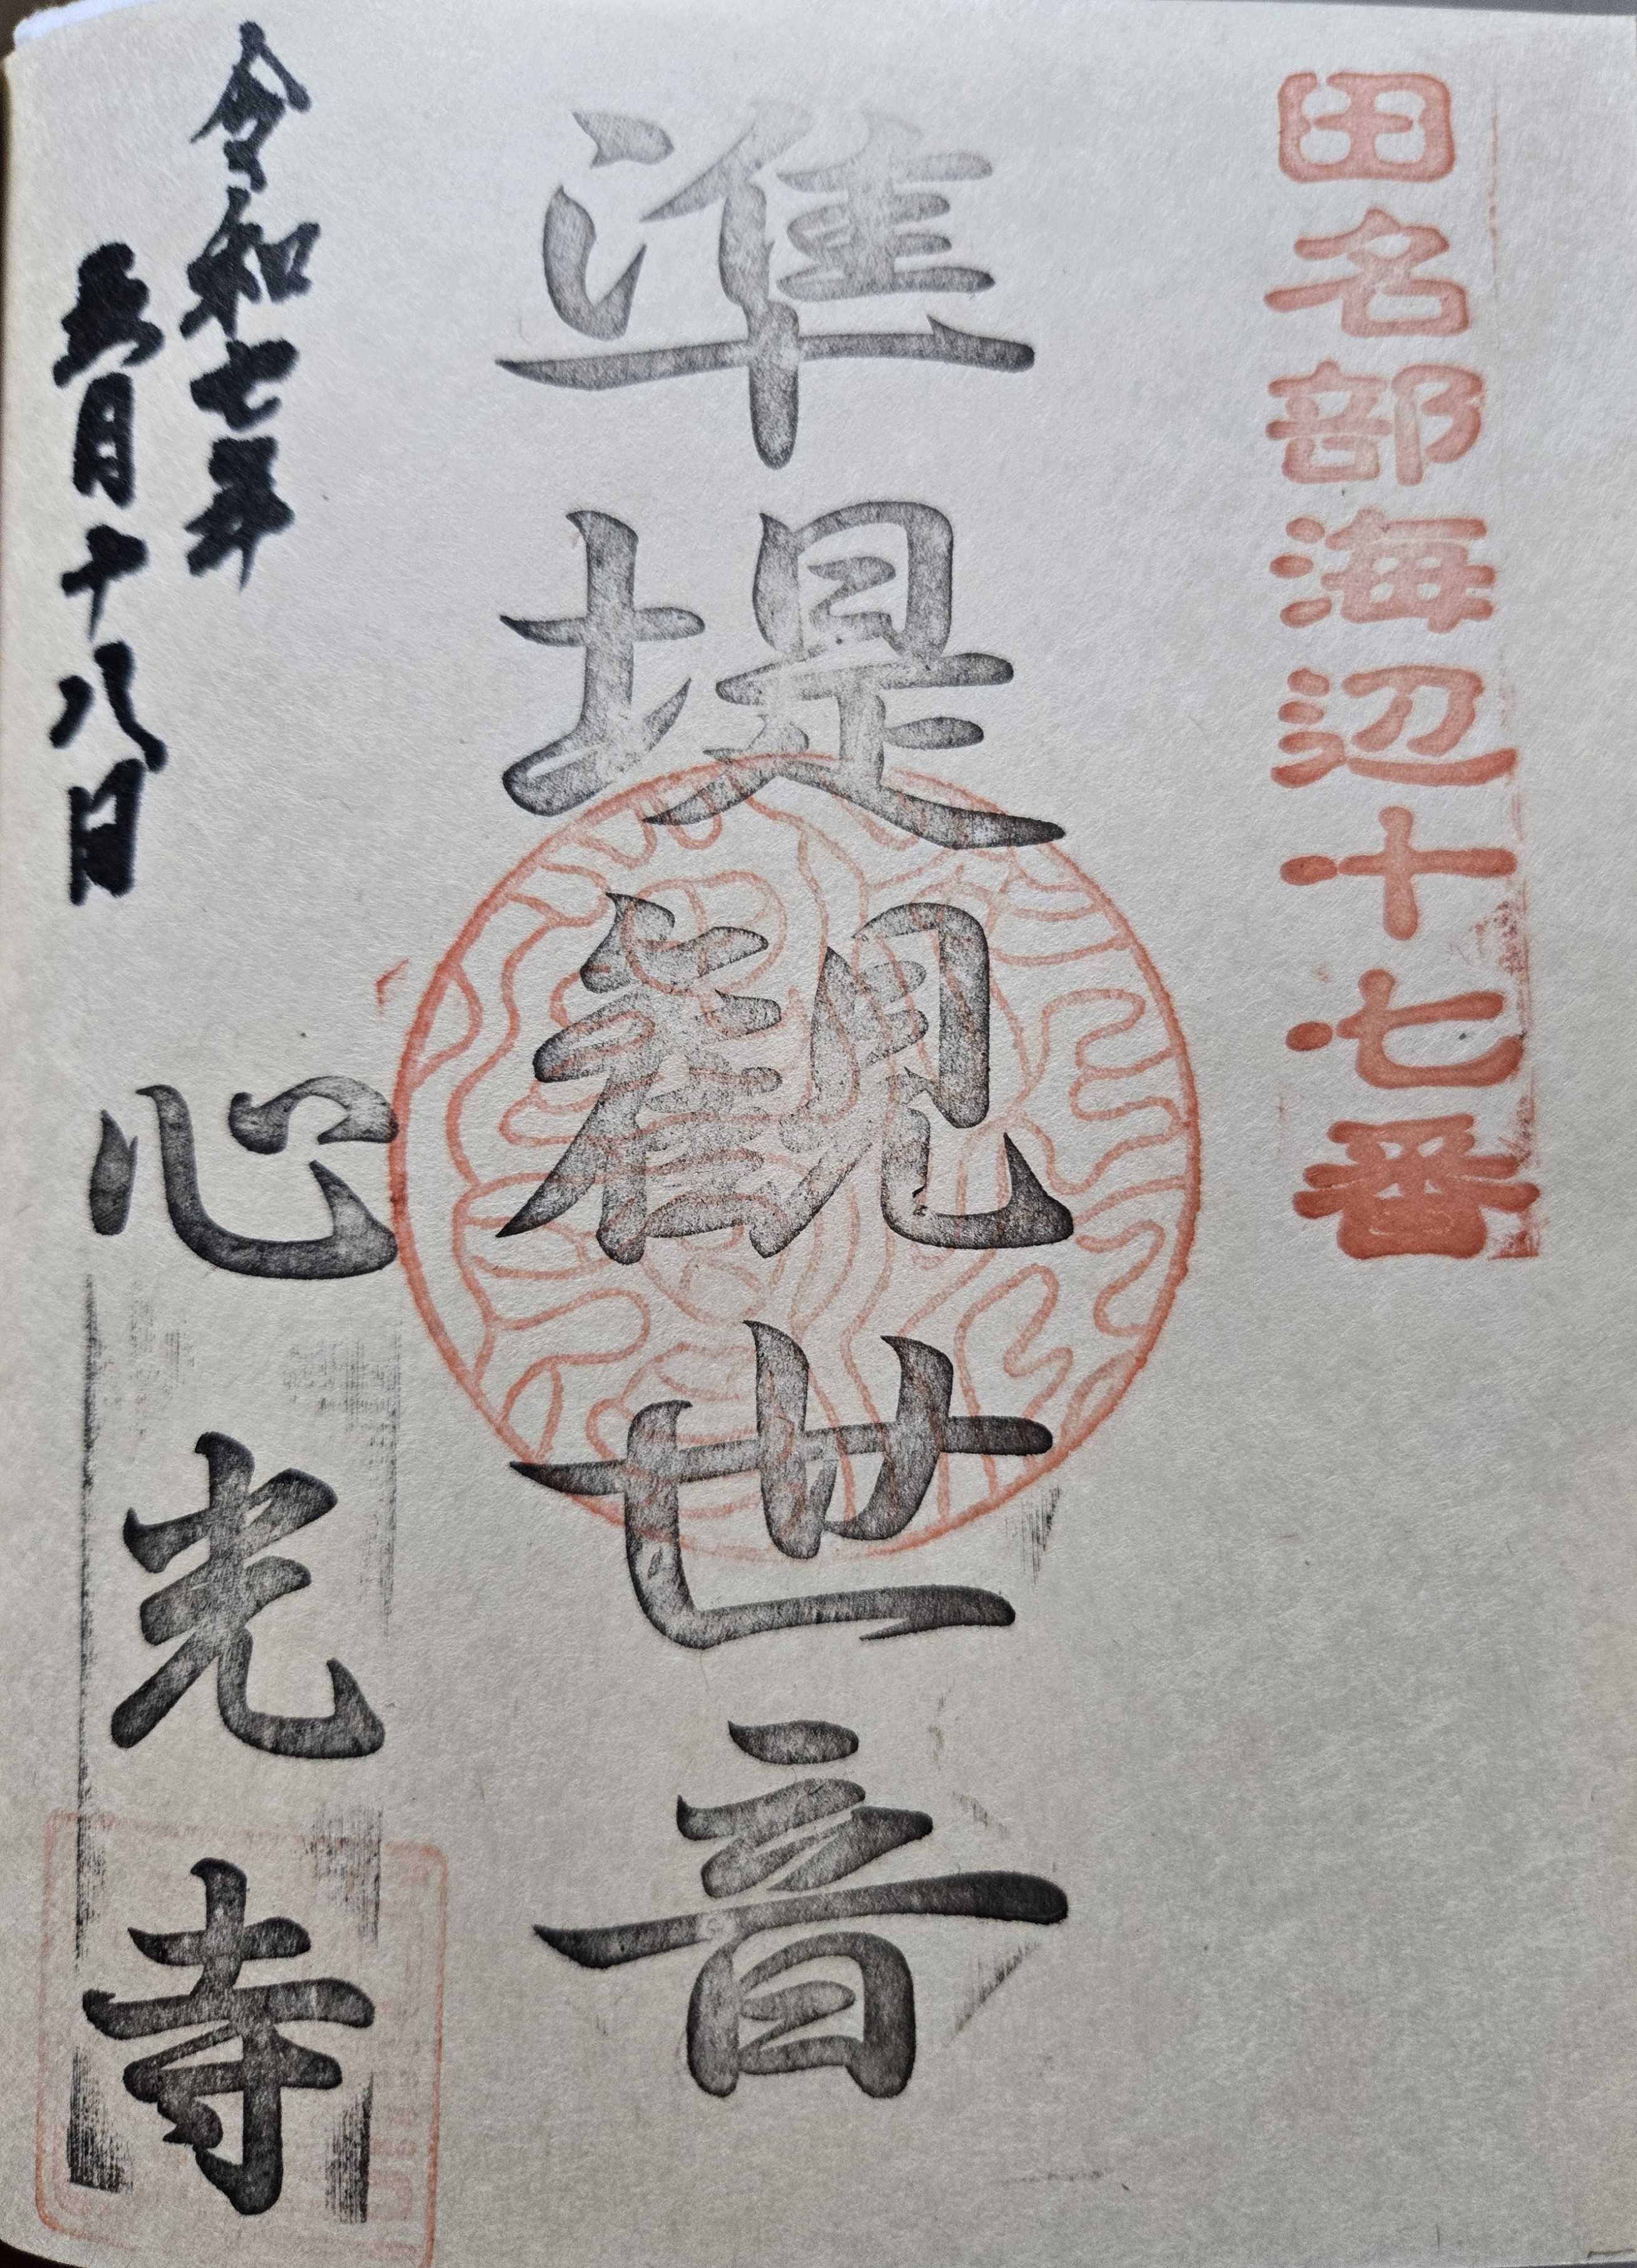 田名部海辺十七番
準堤觀世音
令和七年
五月十八日
心光寺